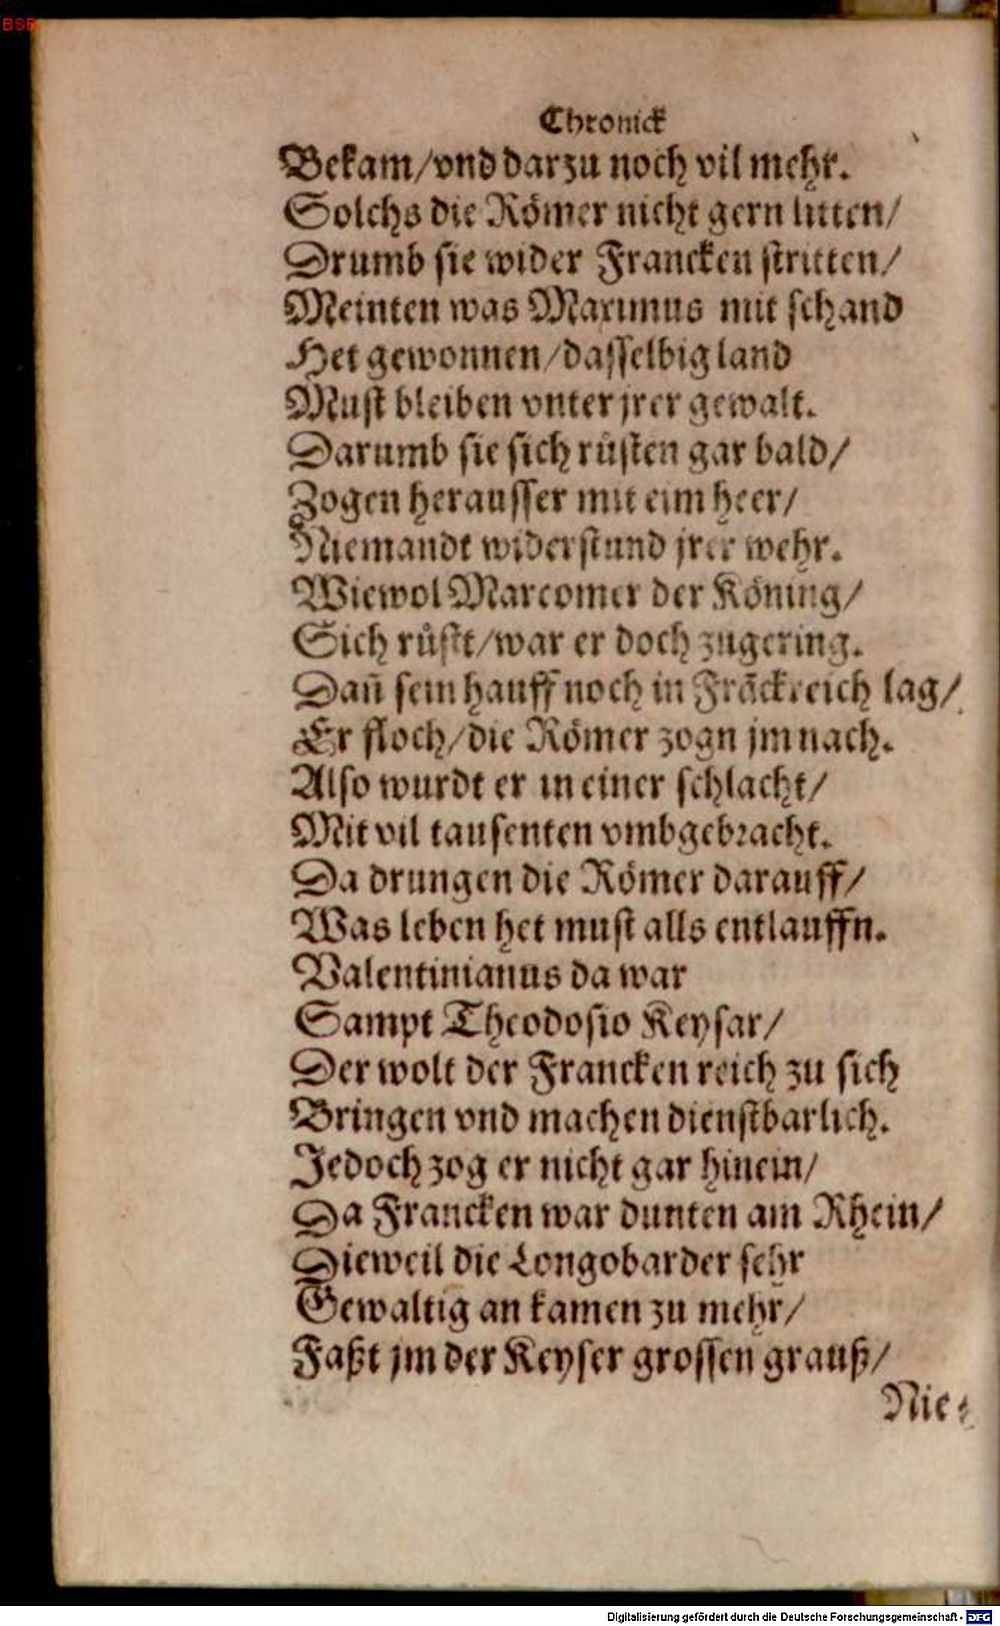 BSB
Chronick
Bekam/vnd darzu noch vil mehr.
Solchs die Römer nicht gern litten/
Drumb sie wider Francken stritten/
Meinten was Maximus mit schand
Het gewonnen/dasselbig land
Must bleiben vnter jrer gewalt.
Darumb sie sich rüsten gar bald/
Zogen herausser mit eim heer/
Niemandt widerstund jrer wehr.
Wiewol Marcomer der Köning/
Sich rüst/war er doch zugering.
Dan̄ sein hauff noch in Frāckreich lag/
Er floch/die Römer zogn jm nach.
Also wurdt er in einer schlacht/
Mit vil tausenten vmbgebracht.
Da drungen die Römer darauff/
Was leben het must alls entlauffn.
Valentinianus da war
Sampt Theodosio Keysar/
Der wolt der Francken reich zu sich
Bringen vnd machen dienstbarlich.
Jedoch zog er nicht gar hinein/
Da Francken war dunten am Rhein/
Dieweil die Longobarder sehr
Gewaltig an kamen zu mehr/
Faßt jm der Keyser grossen grauß/
Nie⸗
Digitalisierung gefördert durch die Deutsche Forschungsgemeinschaft - DFG